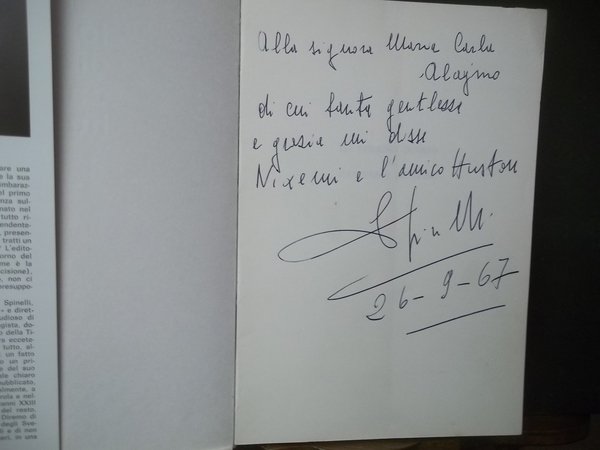 are una
e la sua
imbaraz-
el primo
nza sul-
nato nel
tutto ri-
pendente-
, presen-
tratti un
? L'edito-
orno del
me è la
cisione),
, non ci
presuppo-
Spinelli,
e diret-
tudioso di
gista, do-
o della Ti-
rs eccete-
tutto, al-
un fatto
o un pri-
del suo
ale chiaro
pubblicato,
almente, a
rola e nel-
anni XXIII
del resto,
Diremo di
degli Sve-
li e di non
eri, in una
Alla signora Maria Carla
Alajmo
di cui tanta gentilezza
e grazia mi disse
e l'amico Huston
Spinelli
26-9-67